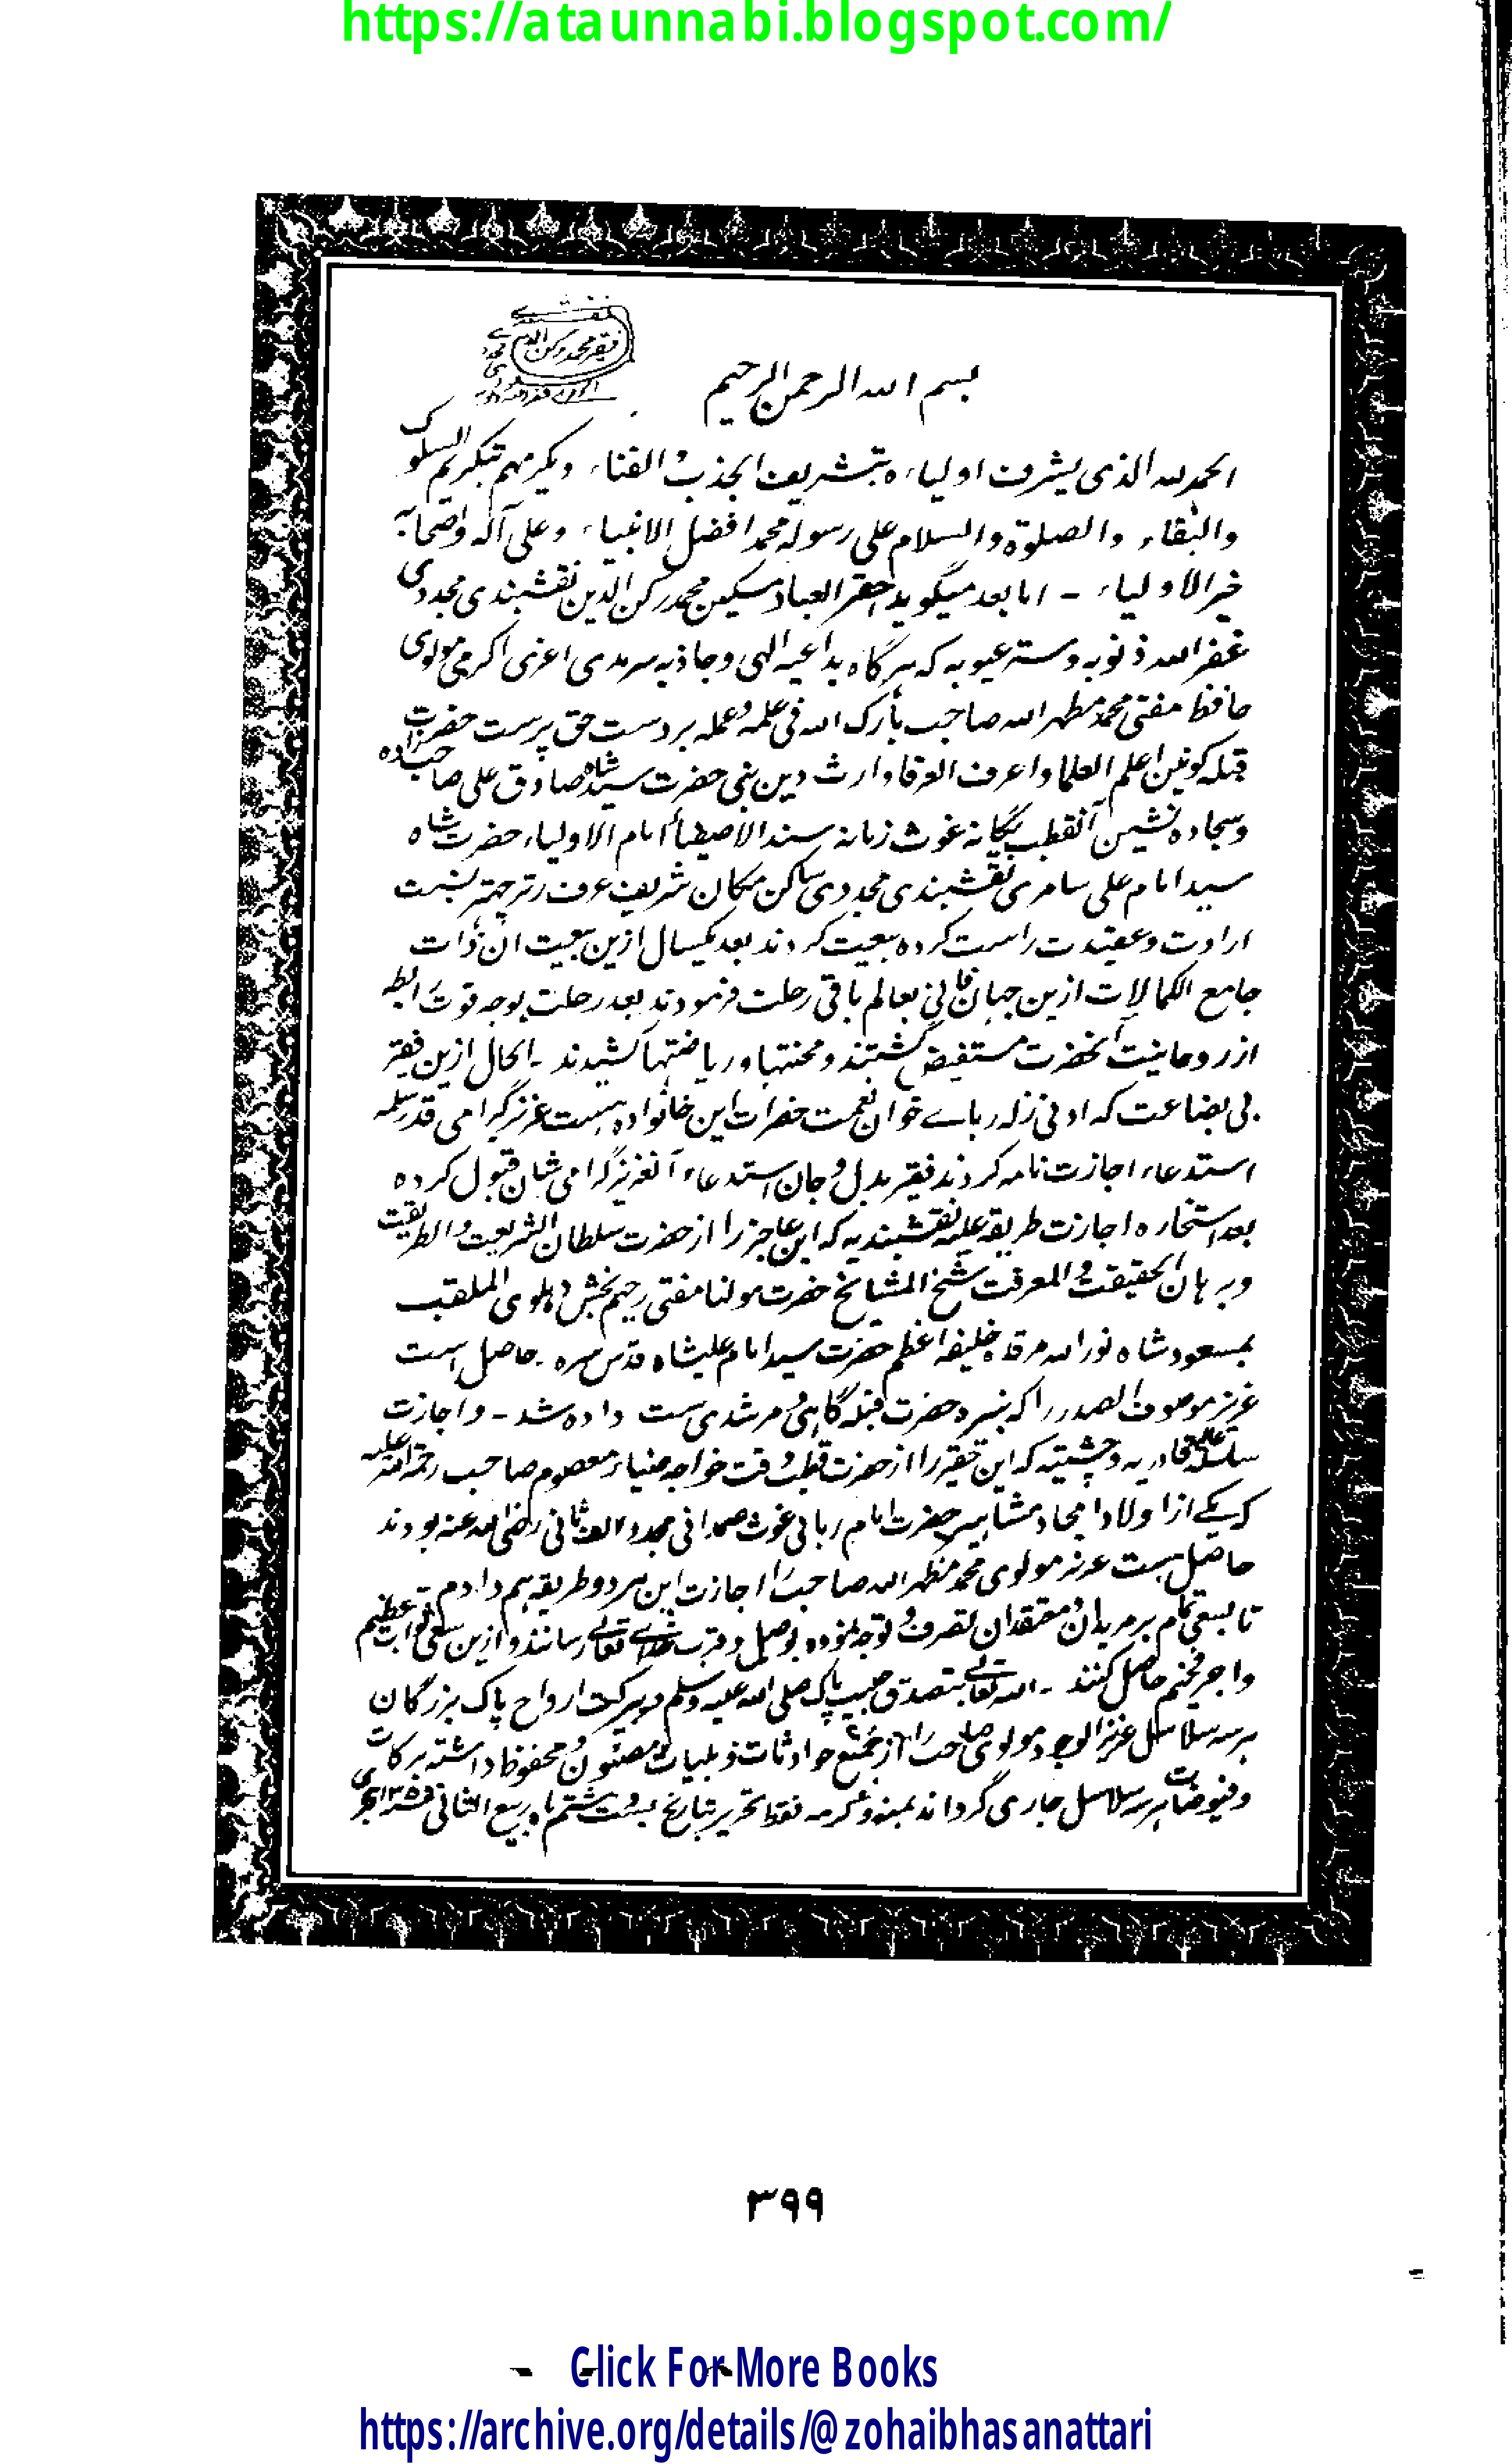 https://ataunnabi.blogspot.com/
فقیر محمد رکن الدین
بسم الله الرحمن الرحیم
الحمد لله الذی یشرف اولیاءه بتشریف الجذب و الفناء ویکرمهم بتکریم السلوک
والبقاء والصلوة والسلام علی رسوله محمد افضل الانبیاء وعلی آله واصحابه
خیر الاولیاء - اما بعد میگوید احقر العباد مسکین محمد رکن الدین نقشبندی مجددی
غفر الله ذنوبه وستر عیوبه که هرگاه بداعیه الهی وجاذبه سرمدی اعزی اکرمی مولوی
حافظ مفتی محمد مظهر الله صاحب بارک الله فی علمه وعمله بر دست حق پرست حضرت
قبله کونین اعلم العلما واعرف العرفا وارث دین نبی حضرت سید شاه صادق علی صاحبزاده
وسجاده نشین آنقطب یگانه غوث زمانه سند الاصفیا امام الاولیاء حضرت شاه
سید امام علی سامری نقشبندی مجددی ساکن مکان شریف عرف رترچهتر نسبت
ارادت وعقیدت راست کرده بیعت کردند بعد یکسال ازین بیعت آن ذات
جامع الکمالات ازین جهان فانی بعالم باقی رحلت فرمودند بعد رحلت بوجه قوت رابطه
از روحانیت آنحضرت مستفیض گشتند ومحنتها وریاضتها کشیدند - الحال ازین فقیر
بی بضاعت که ادنی زله ربائے خوان نعمت حضرات این خانواده هست عزیز گرامی قدر سلمه
استدعاء اجازت نامه کردند فقیر بدل وجان استدعاء آنعزیز گرامی شان قبول کرده
بعد استخاره اجازت طریقه علیه نقشبندیه که این عاجز را از حضرت سلطان الشریعت والطریقت
وبرهان الحقیقت والمعرفت شیخ المشایخ حضرت مولنا مفتی رحیم بخش دهلوی الملقب
بمسعود شاه نور الله مرقده خلیفه اعظم حضرت سید امام علیشاه قدس سره - حاصل است
عزیز موصوف الصدر را که نبیره حضرت قبله گاهی و مرشدی ست داده شد - واجازت
سلسله عالیه قادریه وچشتیه که این حقیر را از حضرت قطب وقت خواجه ضیاء معصوم صاحب رحمة الله علیه
که یکے از اولاد امجاد مشاهیر حضرت امام ربانی غوث صمدانی مجدد الف ثانی رضی الله عنه بودند
حاصل هست عزیز مولوی محمد مظهر الله صاحب را اجازت این هر دو طریقه هم دادم
تا بسعی تمام بر مریدان و معتقدان تصرف و توجه نموده بوصل وقرب خدائے تعالے رسانند وازین سعی ثواب عظیم
واجر فخیم حاصل کنند - الله تعالے بتصدق حبیب پاک صلی الله علیه وسلم وببرکت ارواح پاک بزرگان
هر سه سلاسل عزیز الوجود مولوی صاحب را از جمیع حوادثات وبلیات مصئون ومحفوظ داشته برکات
وفیوضات هر سه سلاسل جاری گرداند بمنه وکرمه فقط تحریر بتاریخ بست وششتم ماه ربیع الثانی
۳۹۹
Click For More Books
https://archive.org/details/@zohaibhasanattari